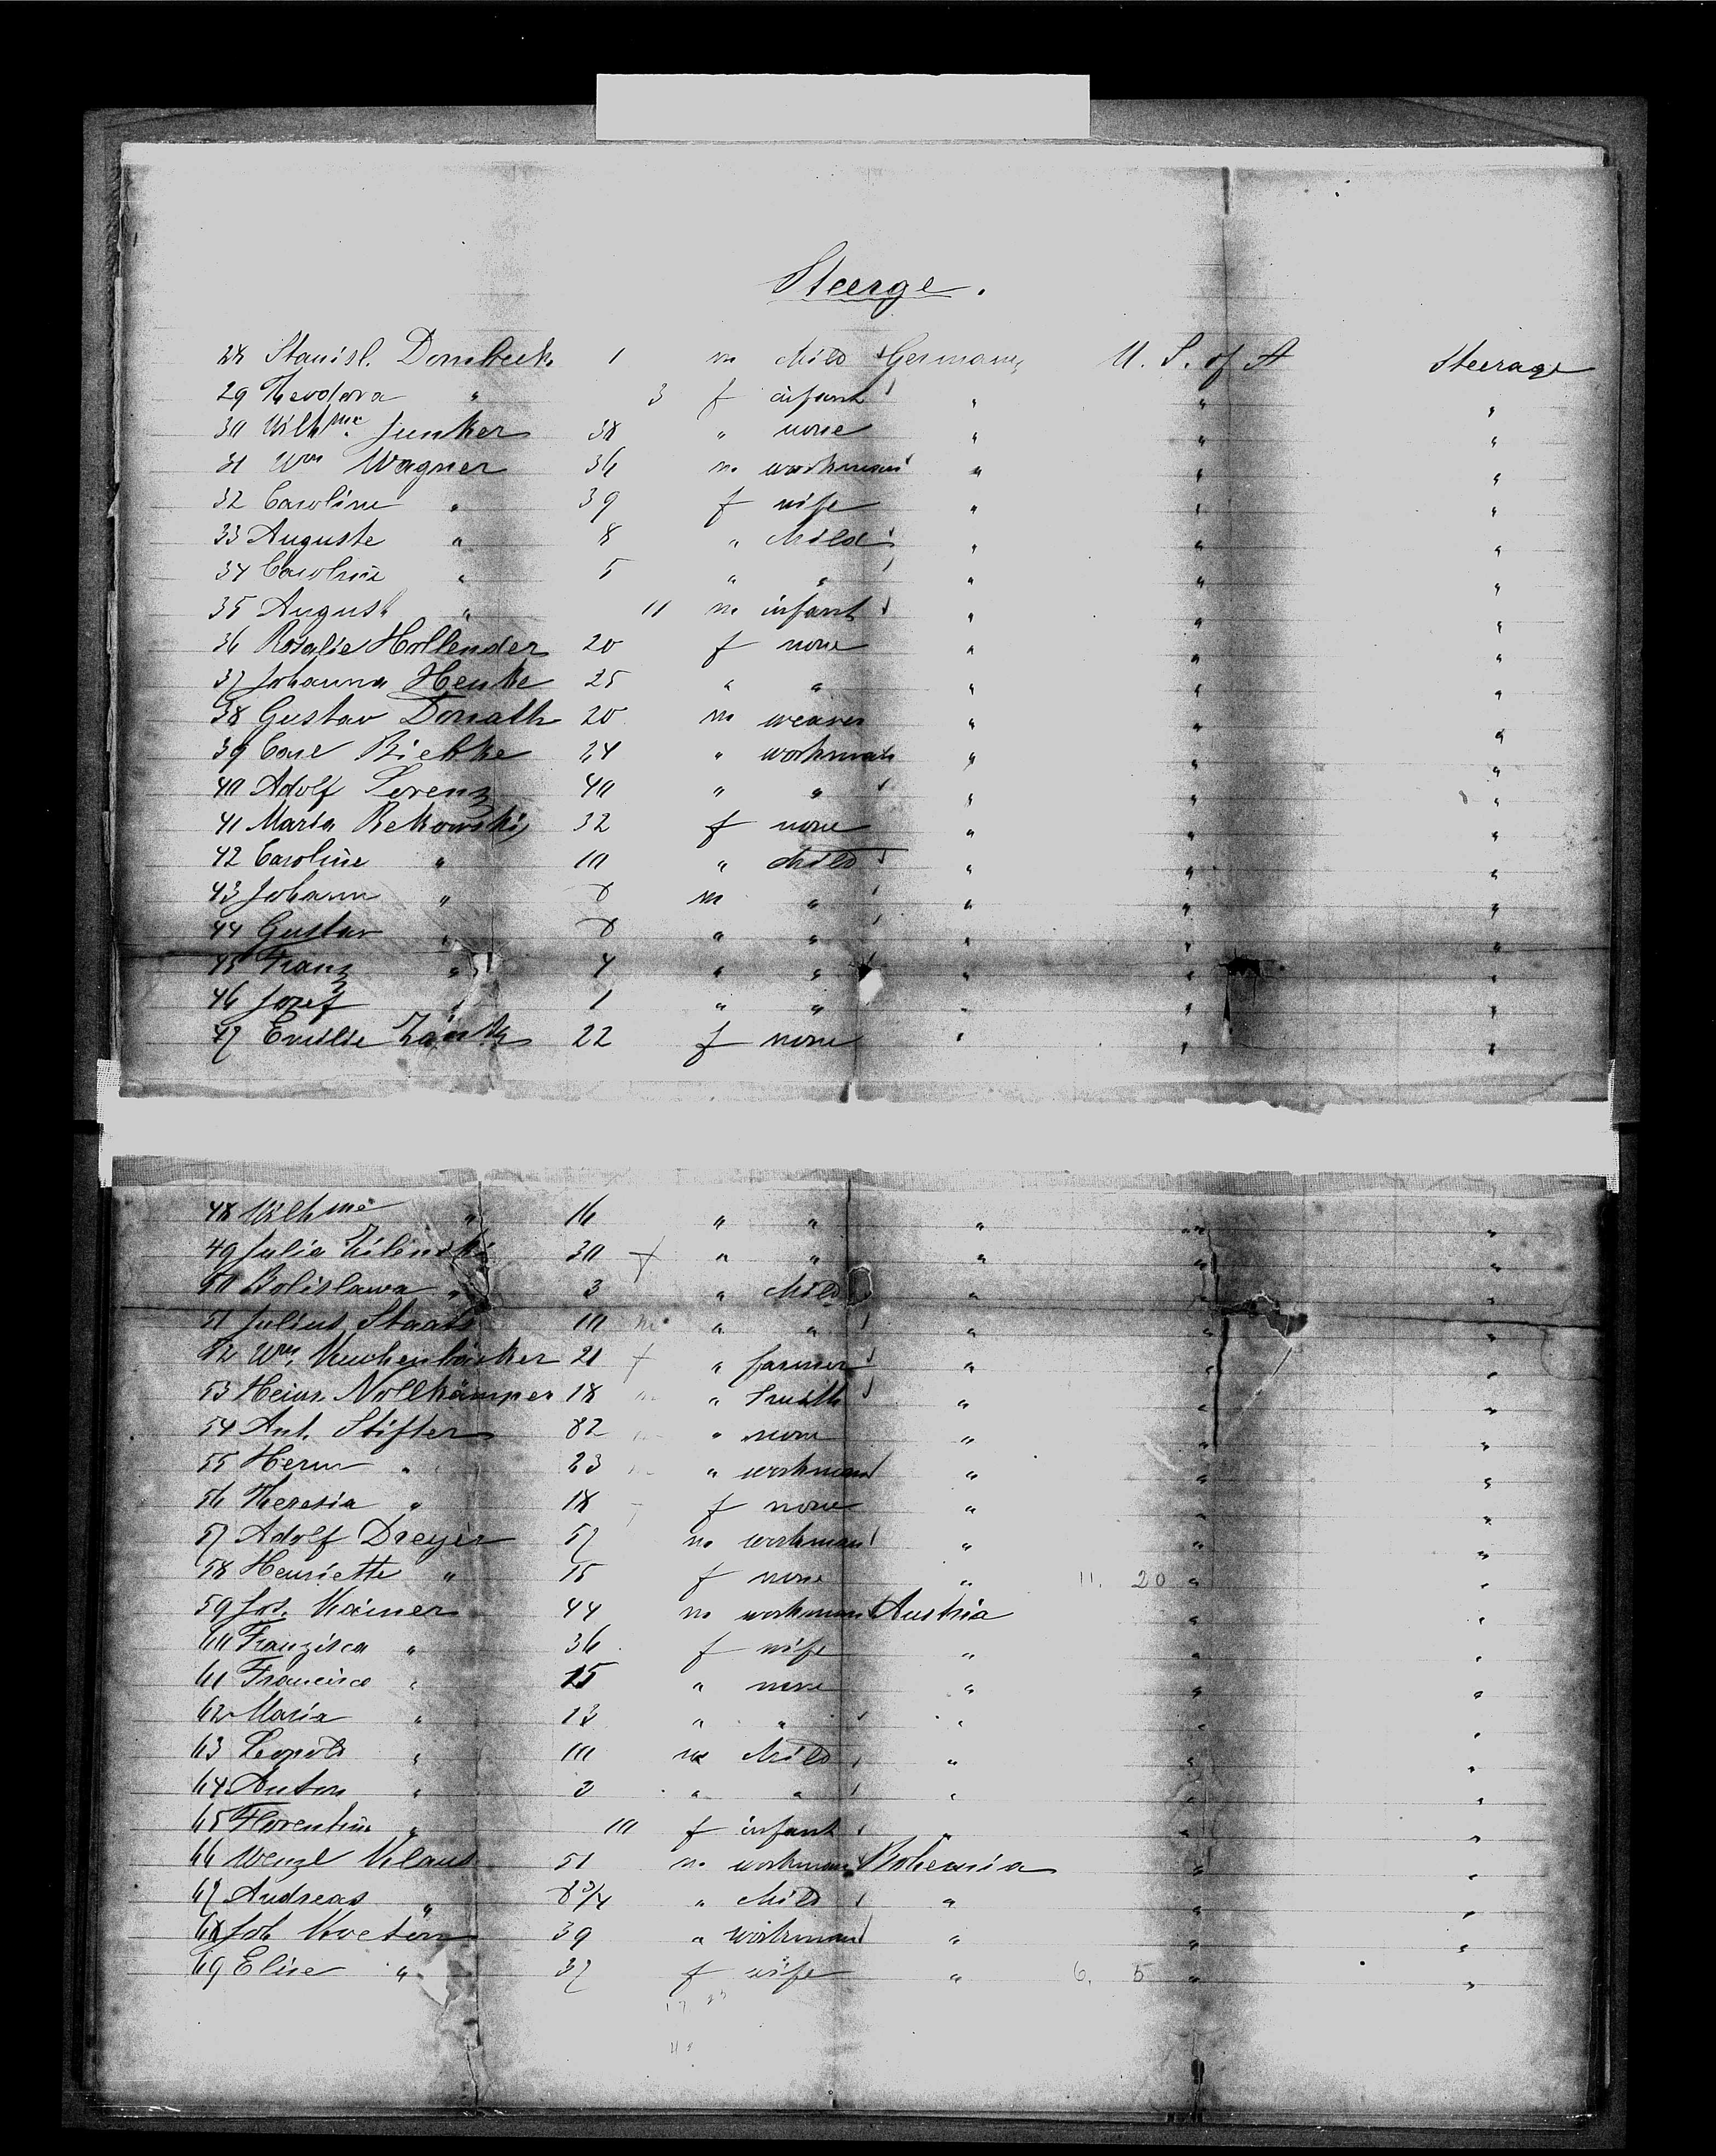 Steerge.
28 Stanisl. Dombeck 1 m child Germany U. S. of A Steerage
29 Theodora " 3 f infant " " "
30 Wilhme Junker 38 " none " " "
31 Wm Wagner 36 m workman " " "
32 Caroline " 39 f wife " " "
33 Auguste " 8 " child " " "
34 Caroline " 5 " " " " "
35 August " 11 m infant " " "
36 Rosalie Hollender 20 f none " " "
37 Johanna Henke 25 " " " " "
38 Gustav Donath 20 m weaver " " "
39 Carl Biebke 24 " workman " " "
40 Adolf Lorenz 40 " " " " "
41 Maria Rekowski 32 f none " " "
42 Caroline " 10 " child " " "
43 Johann " 8 m " " " "
44 Gustav " 8 " " " " "
45 Franz " 4 " " " " "
46 Josef " 1 " " " " "
47 Emilie 22 f none " " "
48 Wilhme " 16 " " " " "
49 Julia Zilenski 30 " " " " "
50 Bolislawa " 3 " child " " "
51 Julius Staats 10 m " " " " "
52 Wm. Kuchenbäcker 21 " farmer " " "
53 Heinr. Nollkämper 18 " Smith " " "
54 Ant. Stifter 82 " none " " "
55 Herm " 23 " workman " " "
56 Theresia " 18 f none " " "
57 Adolf Dreyer 57 m workman " " "
58 Henriette " 15 f none " 11. 20 " "
59 Jos. Kainer 44 m workman Austria " "
60 Franzisca " 36 f wife " " "
61 Francisca " 15 " none " " "
62 Maria " 13 " " " " "
63 Leopold " 10 m child " " "
64 Anton " 3 " " " " "
65 Florentine " 10 f infant " " "
66 Wenzl Klaus 51 m workman Bohemia " "
67 Andreas " 8 3/4 " child " " "
68 Joh Kveton 39 " workman " " "
69 Elise " 37 f wife " 6. 5 " "